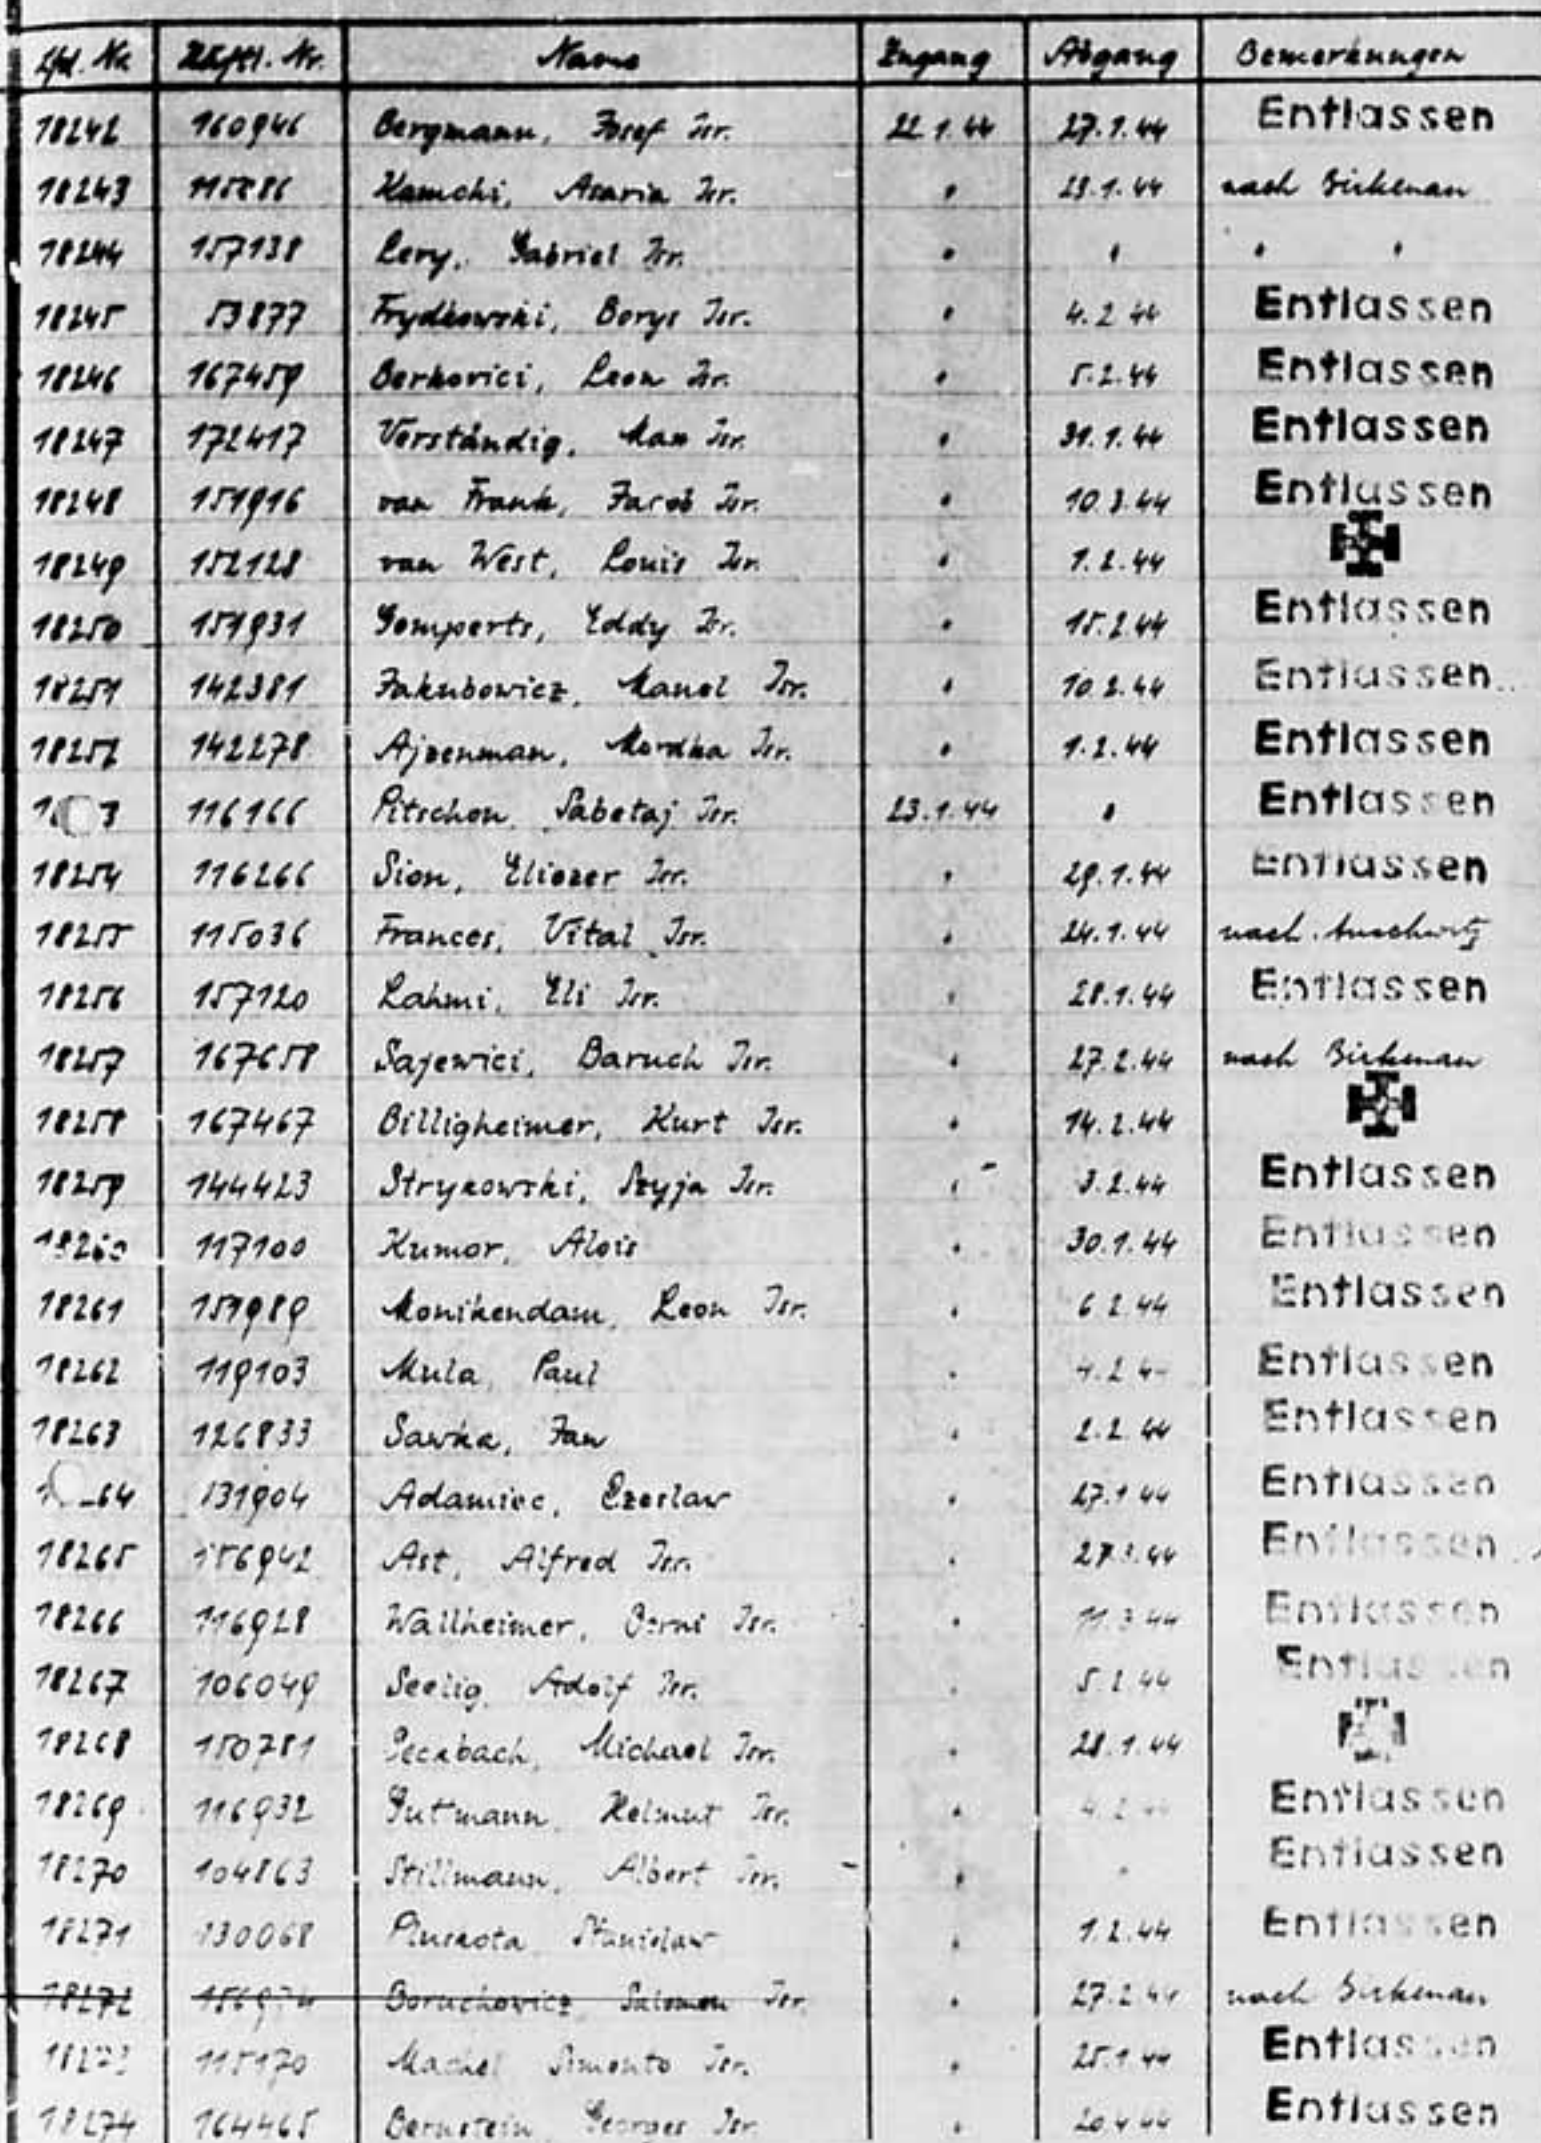 Lfd. Nr. Häftl. Nr. Name Zugang Abgang Bemerkungen
18242 160946 Bergmann, Josef Isr. 22.1.44 27.1.44 Entlassen
18243 Kamchi, Asaria Isr. " nach Birkenau
18244 157138 Levy, Gabriel Isr. " " " "
18245 53877 Frydkowski, Borys Isr. " 4.2.44 Entlassen
18246 167459 Berkovici, Leon Isr. " 5.2.44 Entlassen
18247 172417 Verständig, Max Isr. " 31.1.44 Entlassen
18248 151916 van Frank, Jacob Isr. " Entlassen
18249 152128 van West, Louis Isr. " 1.2.44
18250 151931 Gomperts, Eddy Isr. " 15.2.44 Entlassen
18251 142381 Jakubowicz, Manel Isr. " 10.2.44 Entlassen
18252 142278 Ajzenman, Mordka Isr. " 1.2.44 Entlassen
116166 Pitschon, Sabetaj Isr. 23.1.44 " Entlassen
18254 116266 Sion, Eliezer Isr. " 29.1.44 Entlassen
18255 115036 Frances, Vital Isr. " 24.1.44 nach Auschwitz
18256 157120 Lahmi, Eli Isr. " 28.1.44 Entlassen
18257 167658 Sajewici, Baruch Isr. " 27.2.44 nach Birkenau
18258 167467 Billigheimer, Kurt Isr. " 14.2.44
18259 144423 Strykowski, Szyja Isr. " 3.2.44 Entlassen
18260 117100 Kumor, Alois " 30.1.44 Entlassen
18261 151989 Monikendam, Leon Isr. " 6.2.44 Entlassen
18262 119103 Mula, Paul " Entlassen
18263 126833 Sawka, Jan " 2.2.44 Entlassen
131904 Adamiec, Czeslaw " 27.1.44 Entlassen
18265 156942 Ast, Alfred Isr. " Entlassen
18266 116928 Wallheimer, Berni Isr. " 11.3.44 Entlassen
18267 106049 Seelig, Adolf Isr. " 5.2.44 Entlassen
18268 150781 Michael Isr. " 28.1.44
18269 116932 Gutmann, Helmut Isr. " Entlassen
18270 104863 Stillmann, Albert Isr. " " Entlassen
18271 130068 Pluskota Stanislaw " 1.2.44 Entlassen
18272 Boruchowicz, Salomon Isr. " 27.2.44 nach Birkenau
18273 115170 Isr. " 25.1.44 Entlassen
18274 164465 Bernstein, Georges Isr. " Entlassen